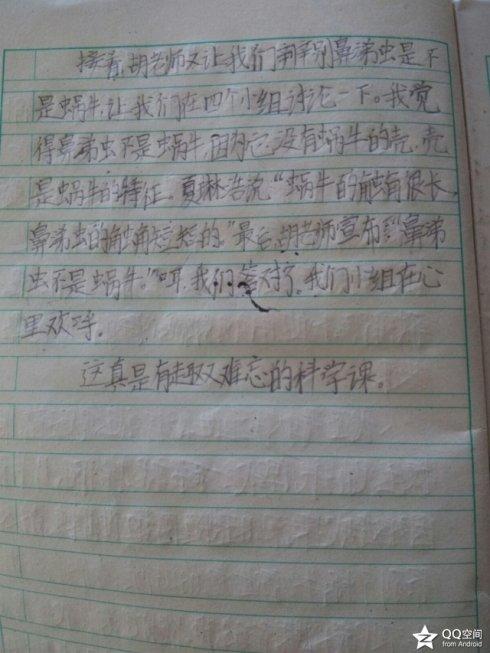 接着,胡老师又让我们辨别鼻涕虫是不
是蜗牛,让我们在四个小组讨论一下。我觉
得鼻涕虫不是蜗牛,因为它没有蜗牛的壳,壳
是蜗牛的特征。夏琳浩说“蜗牛的触角很长,
鼻涕虫的触角是短的。”最后,胡老师宣布“鼻涕
虫不是蜗牛。”“耶,我们答对了。我们小组在心
里欢呼。
这真是有趣又难忘的科学课。
QQ空间
from Android